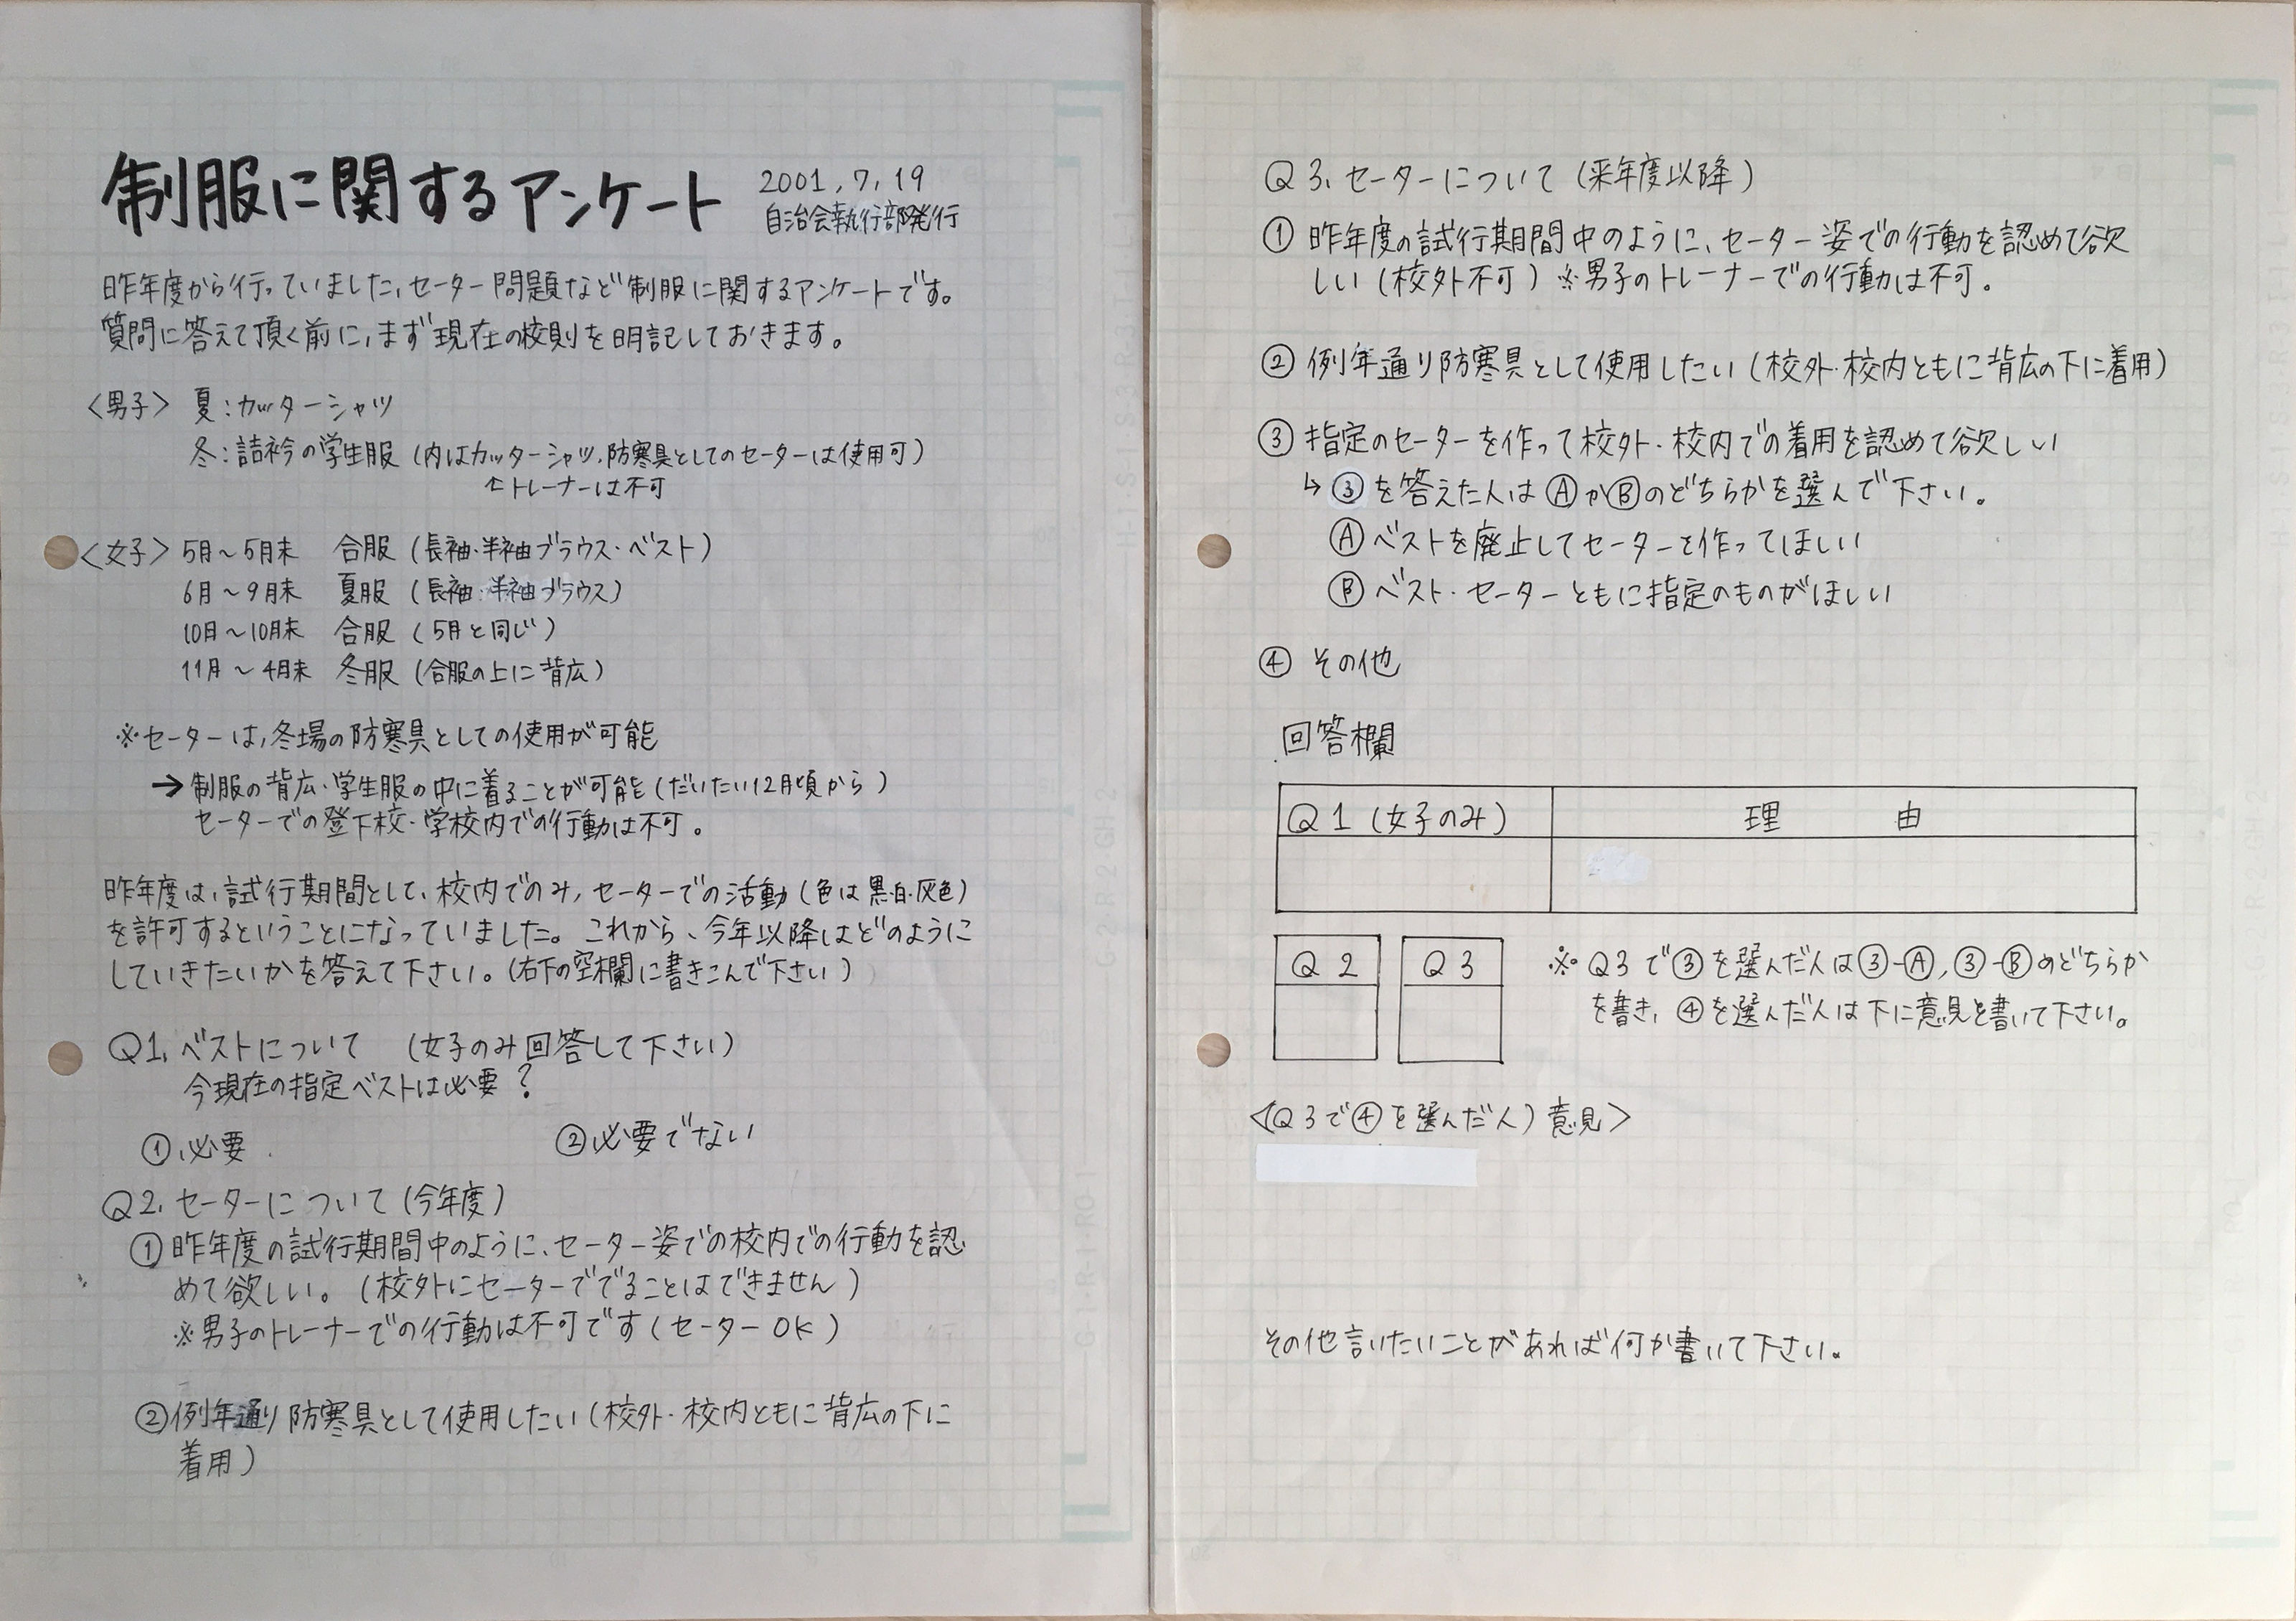 制服に関するアンケート
2001,7,19
自治会執行部発行
昨年度から行っていました、セーター問題など制服に関するアンケートです。
質問に答えて頂く前に,まず現在の校則を明記しておきます。
〈男子〉 夏:カッターシャツ
冬:詰衿の学生服 (内はカッターシャツ,防寒具としてのセーターは使用可)
←トレーナーは不可
〈女子〉 5月〜5月末 合服 (長袖・半袖ブラウス・ベスト)
6月〜9月末 夏服 (長袖・半袖ブラウス)
10月〜10月末 合服 (5月と同じ)
11月〜4月末 冬服 (合服の上に背広)
※セーターは,冬場の防寒具としての使用が可能
→制服の背広・学生服の中に着ることが可能(だいたい12月頃から)
セーターでの登下校・学校内での行動は不可。
昨年度は,試行期間として、校内でのみ,セーターでの活動(色は黒・白・灰色)
を許可するということになっていました。これから、今年以降はどのように
していきたいかを答えて下さい。(右下の空欄に書きこんで下さい)
Q1,ベストについて (女子のみ回答して下さい)
今現在の指定ベストは必要?
①必要 ②必要でない
Q2,セーターについて(今年度)
①昨年度の試行期間中のように、セーター姿での校内での行動を認
めて欲しい。(校外にセーターででることはできません)
※男子のトレーナーでの行動は不可です(セーターOK)
②例年通り防寒具として使用したい(校外・校内ともに背広の下に
着用)
Q3,セーターについて(来年度以降)
①昨年度の試行期間中のように、セーター姿での行動を認めて欲
しい(校外不可)※男子のトレーナーでの行動は不可.
②例年通り防寒具として使用したい(校外・校内ともに背広の下に着用)
③指定のセーターを作って校外・校内での着用を認めて欲しい
↳③を答えた人はⒶかⒷのどちらかを選んで下さい。
Ⓐベストを廃止してセーターを作ってほしい
Ⓑベスト・セーターともに指定のものがほしい
④ その他
回答欄
Q1(女子のみ) 理由
Q2 Q3
※Q3で③を選んだ人は③-Ⓐ,③-Ⓑのどちらか
を書き,④を選んだ人は下に意見を書いて下さい。
〈Q3で④を選んだ人)意見〉
その他言いたいことがあれば何か書いて下さい。